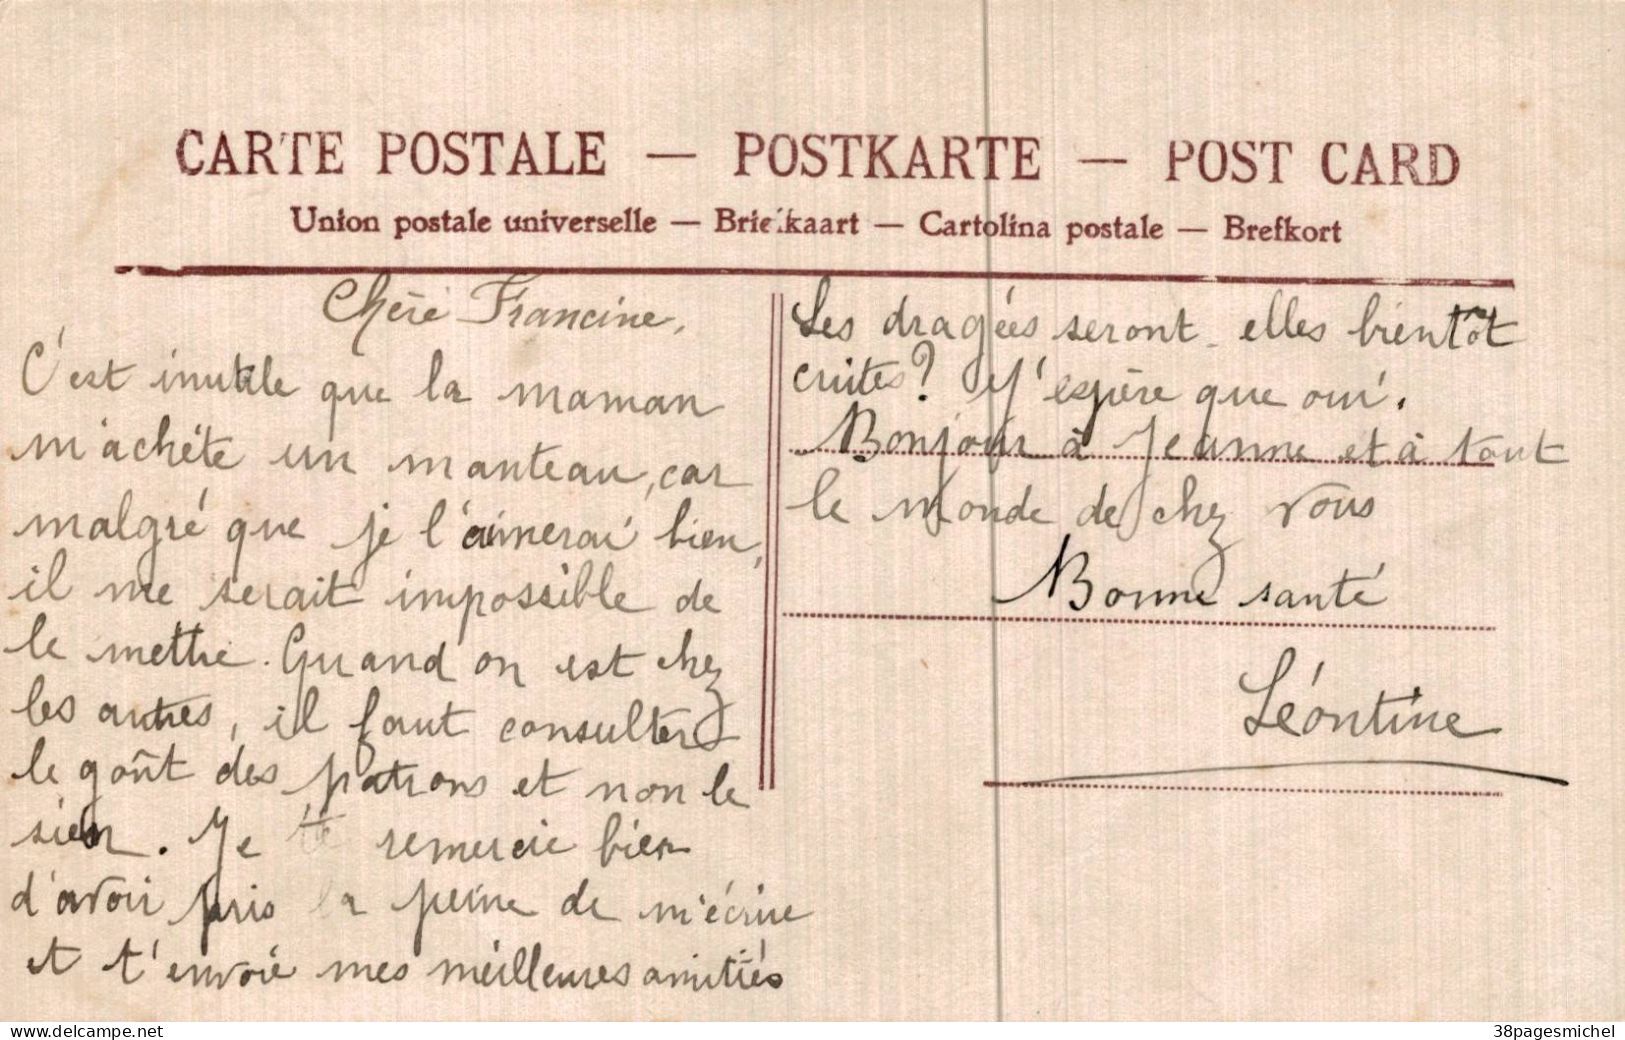 CARTE POSTALE — POSTKARTE — POST CARD
Union postale universelle — Briefkaart — Cartolina postale — Brefkort
Chère Francine,
C'est inutile que la maman
m'achète un manteau, car
malgré que je l'aimerai bien,
il me serait impossible de
le mettre. Quand on est chez
les autres, il faut consulter
le goût des patrons et non le
sien. Je te remercie bien
d'avoir pris la peine de m'écrire
et t'envoie mes meilleures amitiés
Les dragées seront-elles bientôt
cuites? J'espère que oui.
Bonjour à Jeanne et à tout
le monde de chez vous
Bonne santé
Léontine
www.delcampe.net
38pagesmichel